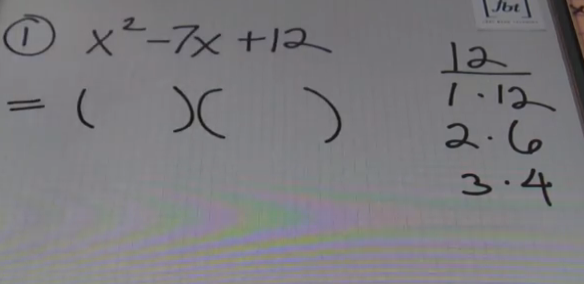 ① x²-7x+12
= (   )(   )
12
1·12
2·6
3·4